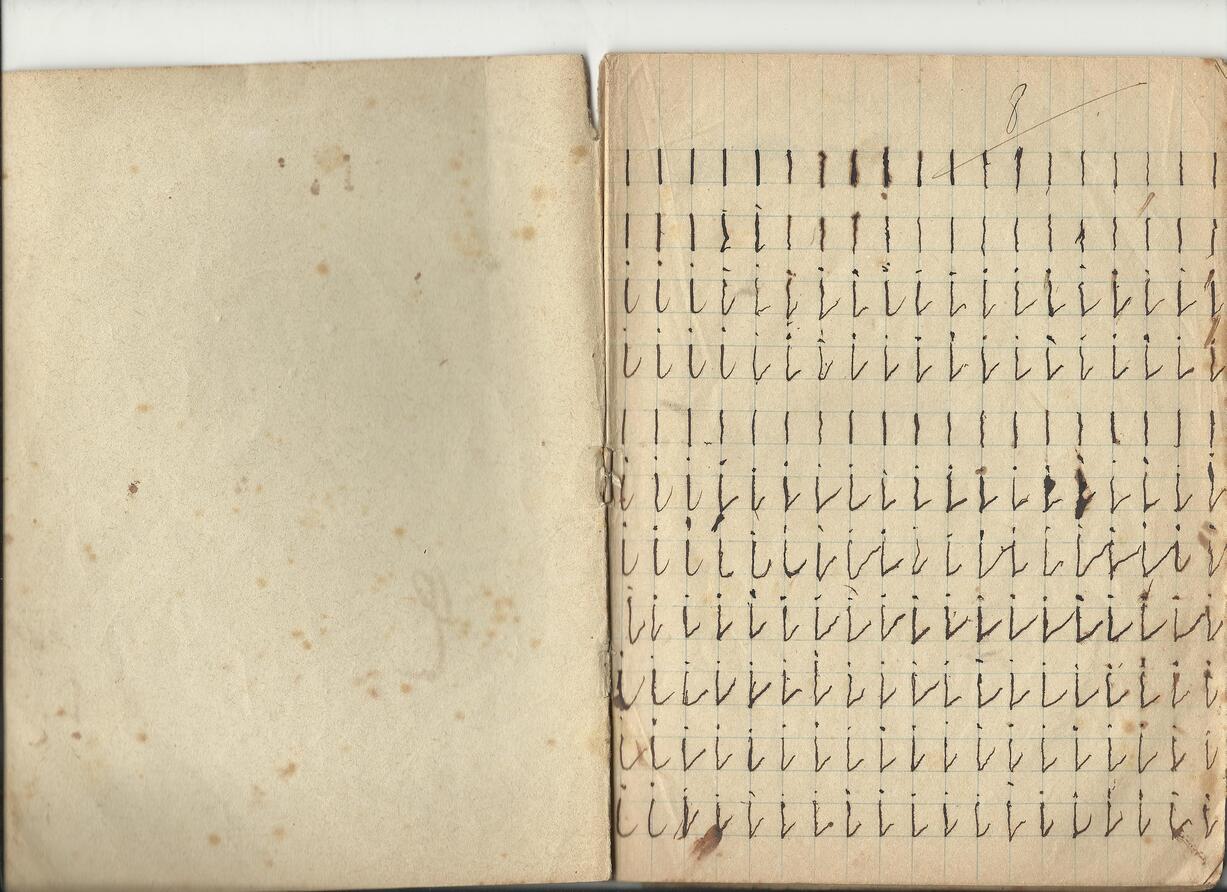 8
ı ı ı ı ı ı ı ı ı ı ı ı ı ı ı ı ı ı ı
ı ı ı ı ı ı ı ı ı ı ı ı ı ı ı ı ı ı ı
i i i i i i i i i i i i i i i i i i i
i i i i i i i i i i i i i i i i i i i
ı ı ı ı ı ı ı ı ı ı ı ı ı ı ı ı ı ı ı
i i i i i i i i i i i i i i i i i i i
i i i i i i i i i i i i i i i i i i i
i i i i i i i i i i i i i i i i i i i
i i i i i i i i i i i i i i i i i i i
i i i i i i i i i i i i i i i i i i i
i i i i i i i i i i i i i i i i i i i